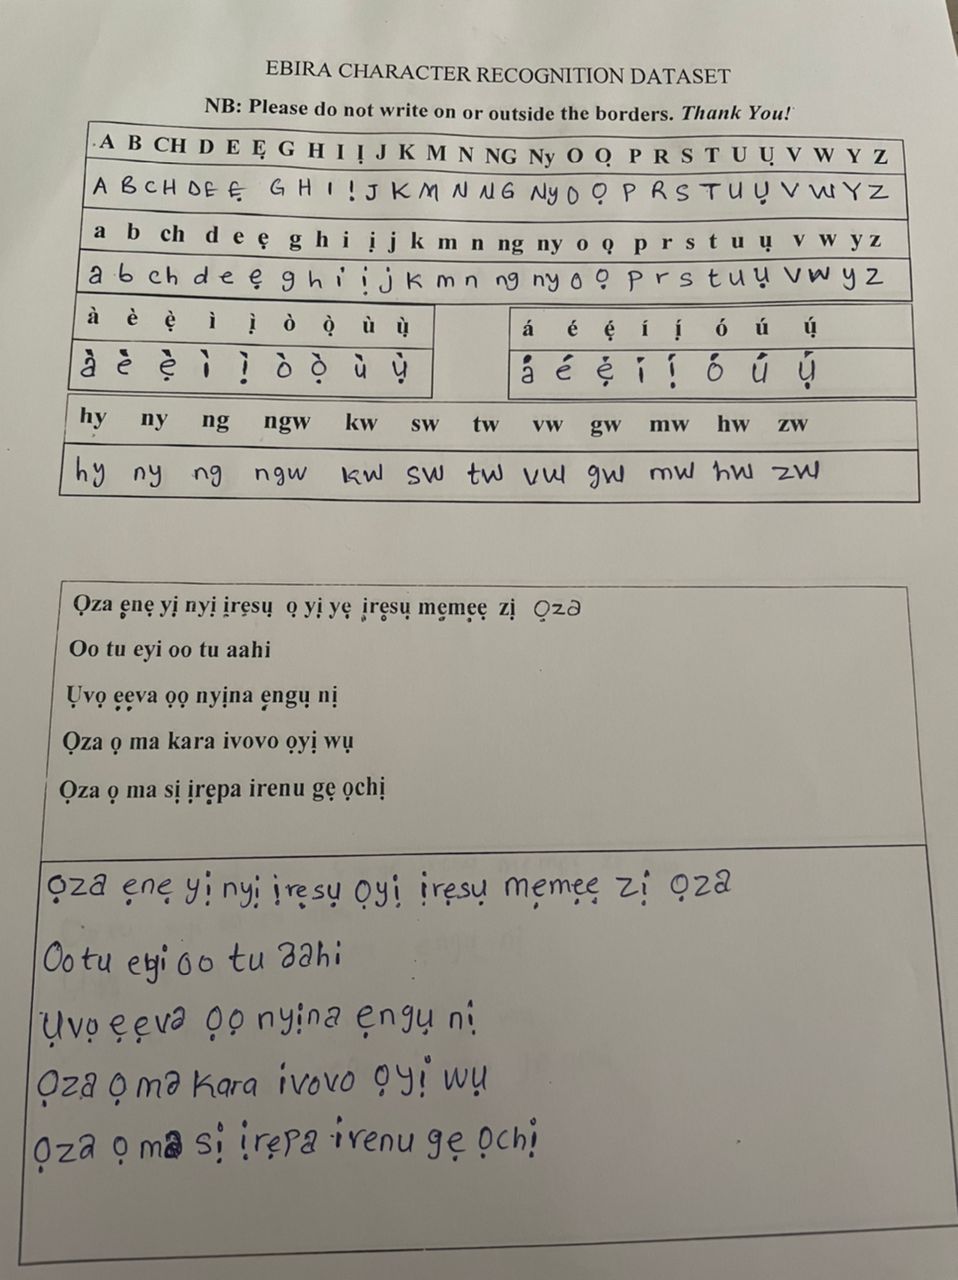 EBIRA CHARACTER RECOGNITION DATASET
NB: Please do not write on or outside the borders. Thank You!
A B CH D E Ẹ G H I Ị J K M N NG Ny O Ọ P R S T U Ụ V W Y Z
A B CH D E Ẹ G H I Ị J K M N NG Ny O Ọ P R S T U Ụ V W Y Z
a b ch d e ẹ g h i ị j k m n ng ny o ọ p r s t u ụ v w y z
a b ch d e ẹ g h i ị j k m n ng ny o ọ p r s t u ụ v w y z
à è ẹ̀ ì ị̀ ò ọ̀ ù ụ̀
à è ẹ̀ ì ị̀ ò ọ̀ ù ụ̀
á é ẹ́ í ị́ ó ú ụ́
á é ẹ́ í ị́ ó ú ụ́
hy ny ng ngw kw sw tw vw gw mw hw zw
hy ny ng ngw kw sw tw vw gw mw hw zw
Ọza ẹnẹ yị nyị ịrẹsụ ọ yị yẹ ịrẹsụ mẹmẹẹ zị ọza
Oo tu eyi oo tu aahi
Ụvọ ẹẹva ọọ nyịna ẹngụ nị
Ọza ọ ma kara ivovo ọyị wụ
Ọza ọ ma sị ịrẹpa irenu gẹ ọchị
Ọza ẹnẹ yị nyị ịrẹsụ ọyị ịrẹsụ mẹmẹẹ zị ọza
Oo tu eyi oo tu aahi
Ụvọ ẹẹva ọọ nyịna ẹngụ nị
Ọza ọ ma kara ivovo ọyị wụ
Ọza ọ ma sị ịrẹpa irenu gẹ ọchị